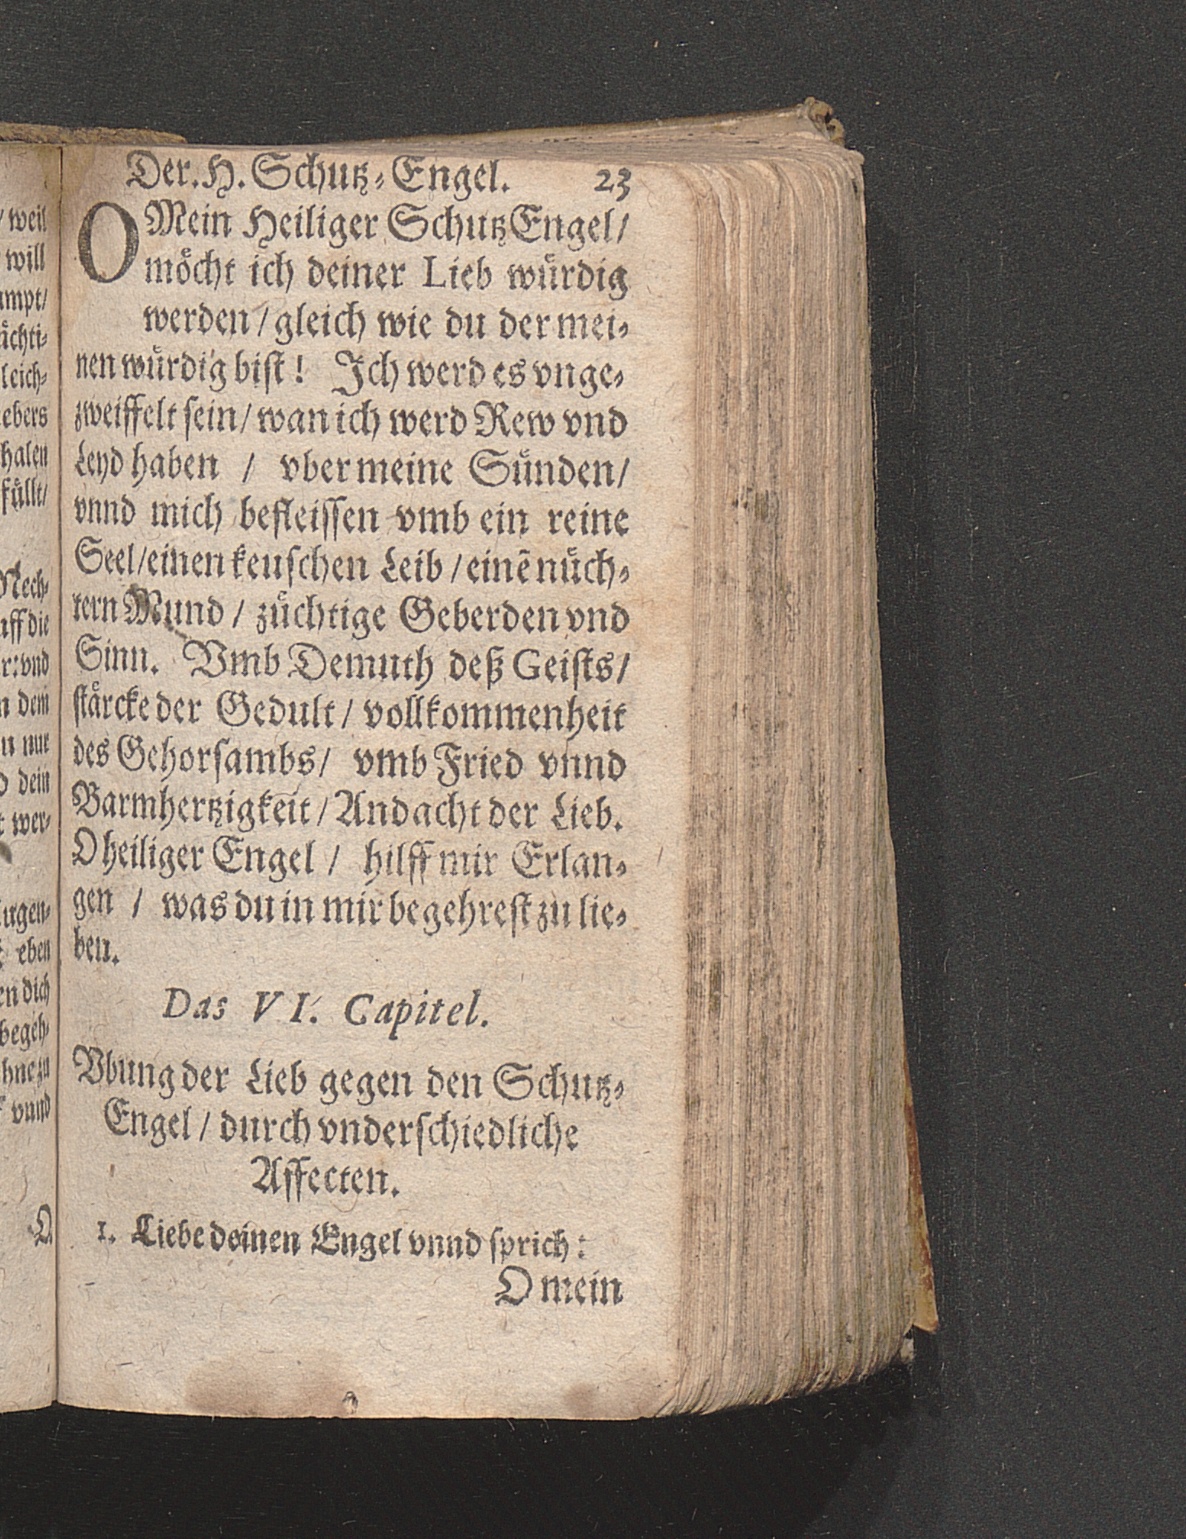 weil
will
ampt/
ächti-
leich-
ebers
halen
füllt/
Nech-
uff die
r: vnd
n dem
n nur
dein
wer-
ugen-
eben
en dich
begeh-
hne zu
vnnd
O
Der. H. Schutz-Engel. 23
O Mein Heiliger SchutzEngel/
möcht ich deiner Lieb würdig
werden / gleich wie du der mei-
nen würdig bist! Ich werd es vnge-
zweiffelt sein / wan ich werd Rew vnd
Leyd haben / vber meine Sünden /
vnnd mich befleissen vmb ein reine
Seel / einen keuschen Leib / einẽ nüch-
tern Mund / züchtige Geberden vnd
Sinn. Vmb Demuth deß Geists /
stärcke der Gedult / vollkommenheit
des Gehorsambs / vmb Fried vnnd
Barmhertzigkeit / Andacht der Lieb.
O heiliger Engel / hilff mir Erlan-
gen / was du in mir begehrest zu lie-
ben.
Das VI. Capitel.
Vbung der Lieb gegen den Schutz-
Engel / durch vnderschiedliche
Affecten.
1. Liebe deinen Engel vnnd sprich:
O mein